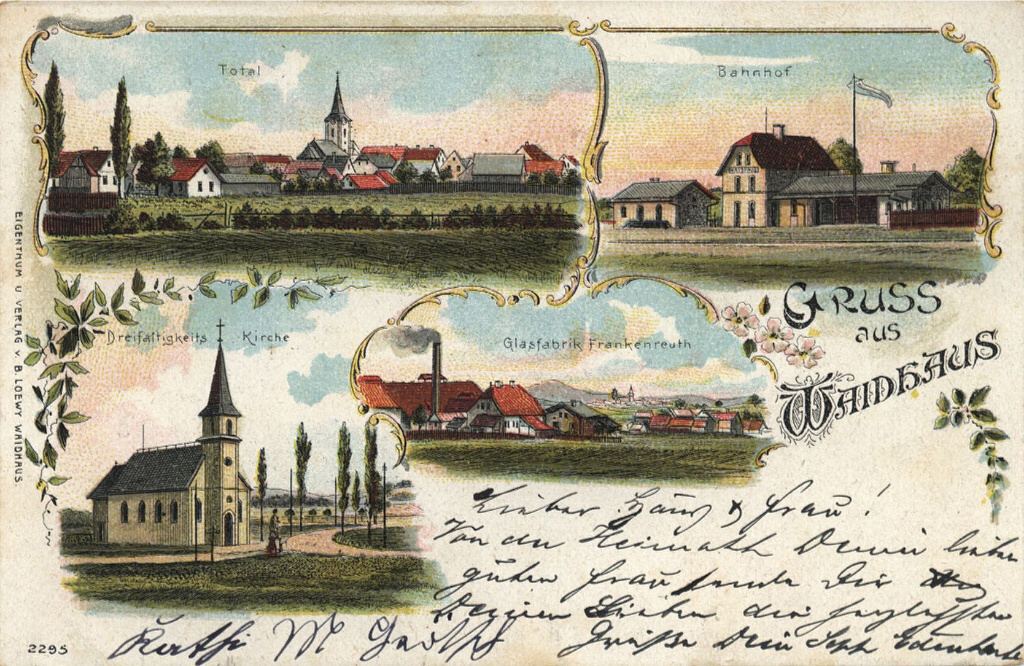 Total
Bahnhof
EIGENTHUM U. VERLAG v. B. LOEWY WAIDHAUS.
Dreifaltigkeits Kirche
Glasfabrik Frankenreuth
GRUSS
aus
WAIDHAUS
Lieber Hans & Frau!
Von der Heimath Deiner lieben
guten Frau sende Dir
Deinen Lieben die herzlichsten
Grüße Dein Seph
Kathi
2295